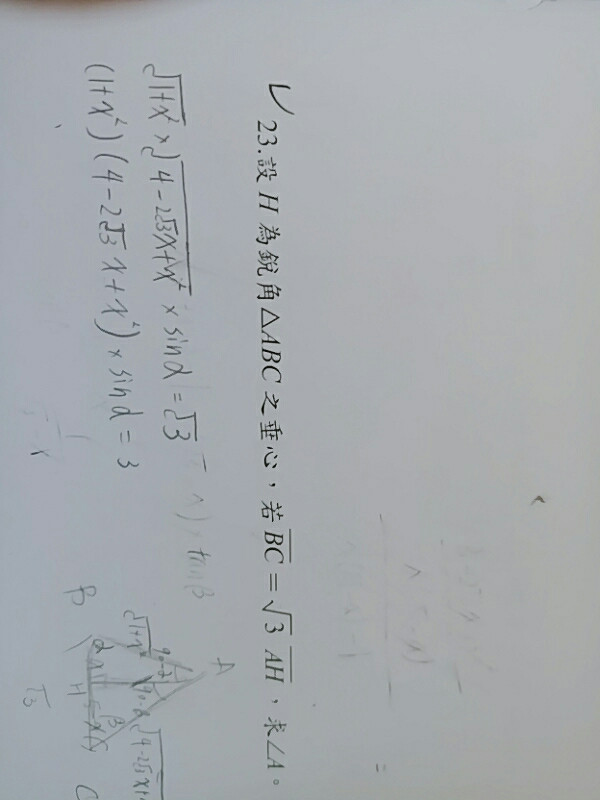 23.設H為銳角△ABC之垂心，若BC=√3 AH，求∠A。
√1+x² × √4-2√3x+x² × sinα = √3
(1+x²)(4-2√3x+x²) × sinα = 3
A
B
H
C
√3